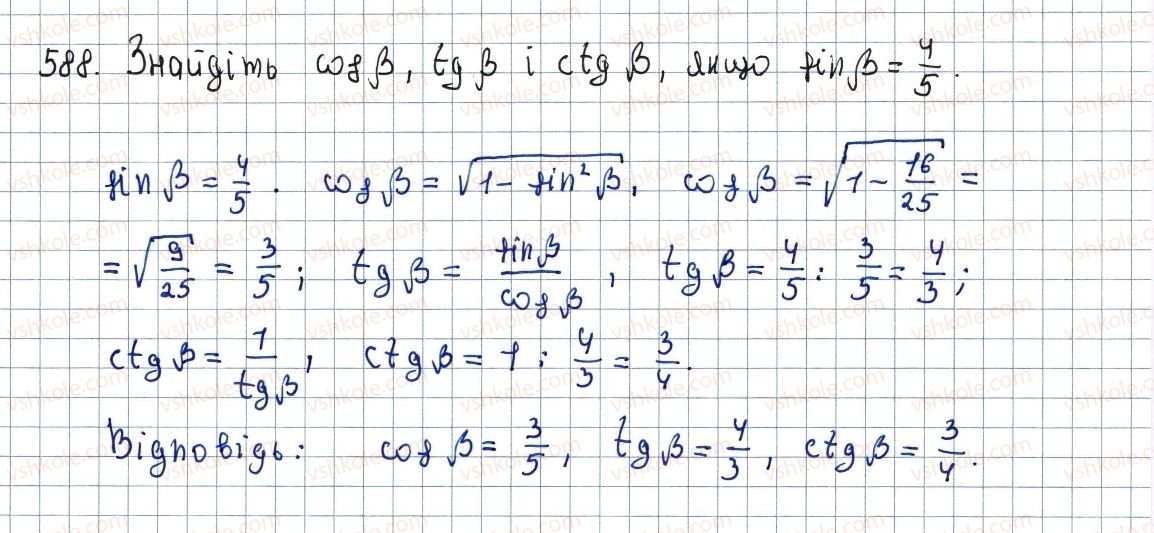 588. Знайдіть cos β, tg β і ctg β, якщо sin β = 4/5.
sin β = 4/5. cos β = √(1 - sin² β), cos β = √(1 - 16/25) =
= √(9/25) = 3/5; tg β = sin β/cos β, tg β = 4/5 : 3/5 = 4/3;
ctg β = 1/tg β, ctg β = 1 : 4/3 = 3/4.
Відповідь: cos β = 3/5, tg β = 4/3, ctg β = 3/4.